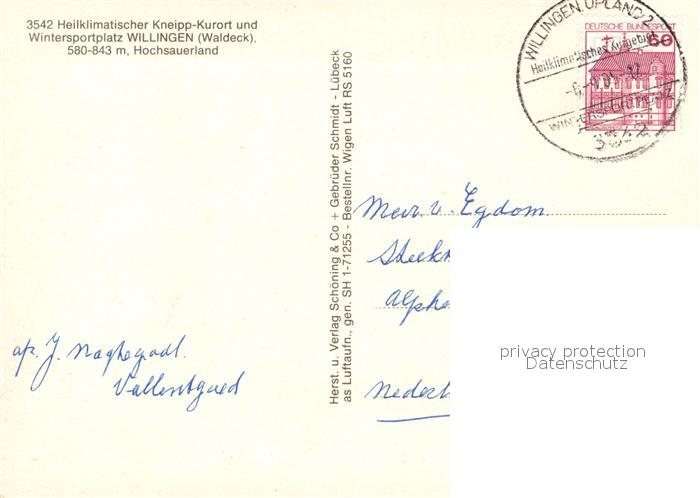 3542 Heilklimatischer Kneipp-Kurort und
Wintersportplatz WILLINGEN (Waldeck),
580-843 m, Hochsauerland
Herst. u. Verlag Schöning & Co + Gebrüder Schmidt - Lübeck
as Luftaufn., gen. SH 1-71255 - Bestellnr. Wigen Luft RS 5160
WILLINGEN, UPLAND 2
Heilklimatisches
3542
DEUTSCHE BUNDESPOST
60
v. Egdom
Nederl
J.
privacy protection
Datenschutz